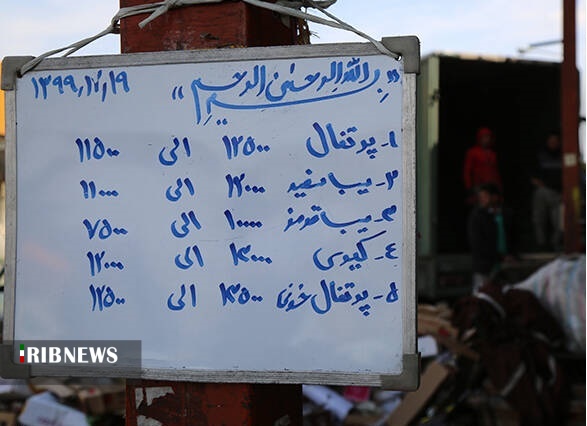 «بسم الله الرحمن الرحیم» ۱۳۹۹٫۱۲٫۱۹
۱- پرتقال ۱۲۵۰۰ الی ۱۱۵۰۰
۲- سیب سفید ۱۲۰۰۰ الی ۱۱۰۰۰
۳- سیب قرمز ۱۰۰۰۰ الی ۷۵۰۰
٤- کیوی ۱۳۰۰۰ الی ۱۲۰۰۰
۵- پرتقال خونی ۱۳۵۰۰ الی ۱۲۵۰۰
IRIBNEWS